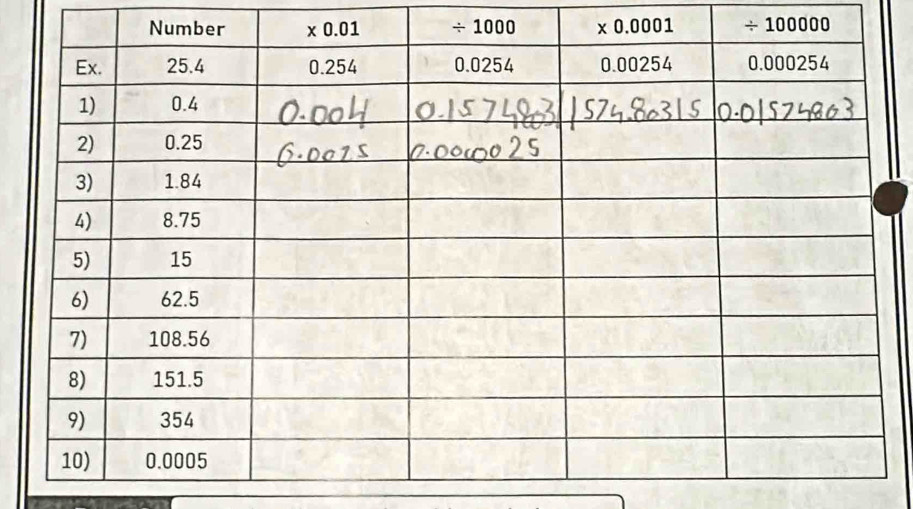 Number x 0.01 ÷ 1000 x 0.0001 ÷ 100000
Ex. 25.4 0.254 0.0254 0.00254 0.000254
1) 0.4 0.004 0.1574803 1574.80315 0.01574803
2) 0.25 0.0025 0.0000025
3) 1.84
4) 8.75
5) 15
6) 62.5
7) 108.56
8) 151.5
9) 354
10) 0.0005